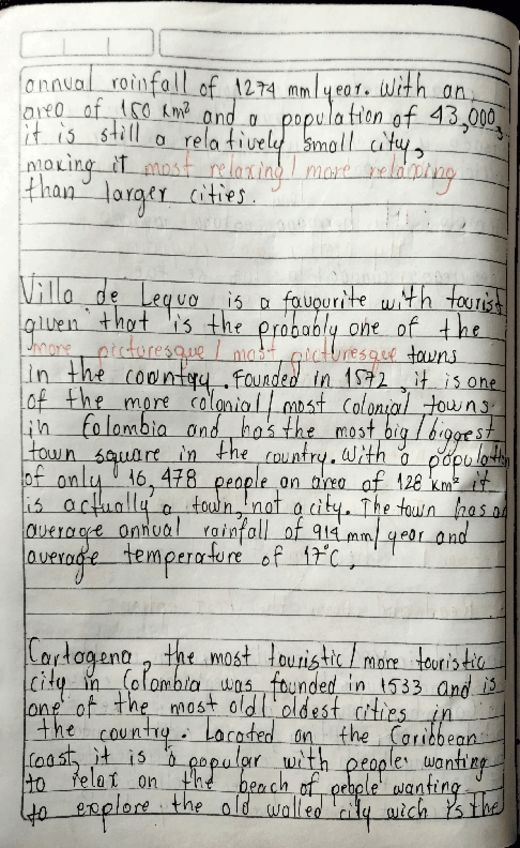 annual rainfall of 1274 mm/year. With an
area of 150 km² and a population of 43,000,
it is still a relatively small city,
making it most relaxing / more relaxing
than larger cities.
Villa de Leqva is a favourite with tourist
given that is the probably one of the
more picturesque / most picturesque towns
in the country. Founded in 1572, it is one
of the more colonial / most colonial towns
in Colombia and has the most big / biggest
town square in the country. With a population
of only 16,478 people an area of 128 km² it
is actually a town, not a city. The town has a
average annual rainfall of 914 mm/year and
average temperature of 17°C.
Cartagena, the most touristic / more touristic
city in Colombia was founded in 1533 and is
one of the most old / oldest cities in
the country. Located on the Caribbean
coast, it is a popular with people wanting
to relax on the beach of people wanting
to explore the old walled city wich is the